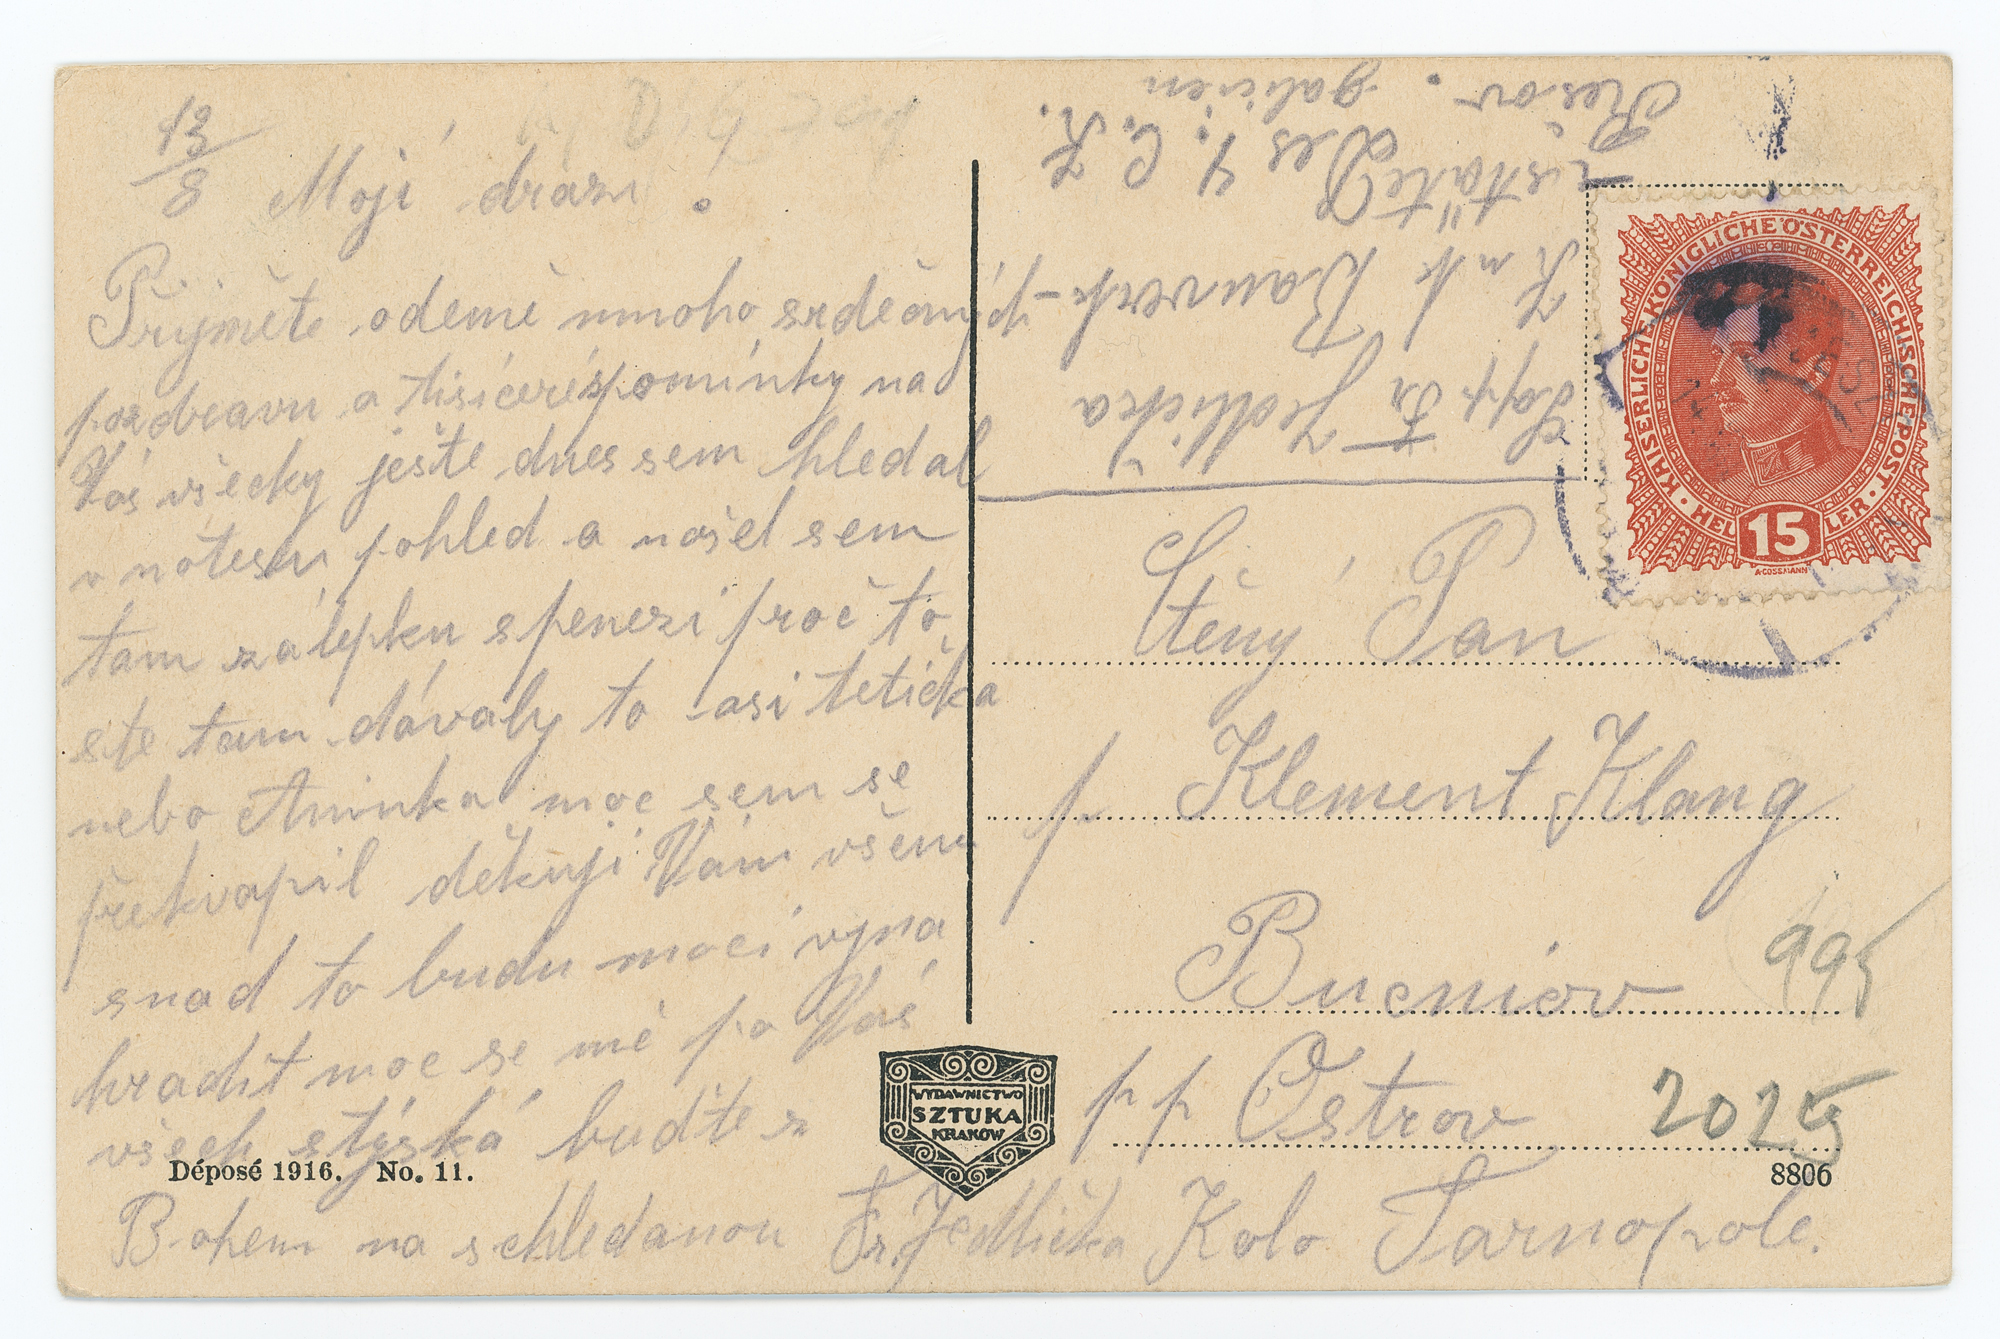 13/8
Mojí drazí!
Přijměte odemě mnoho srdečných
pozdravu a tisíceré spomínky na
Vás všecky ještě dnes sem hledal
v notesu pohled a našel sem
tam zálepku s penezi proč to
ste tam dávaly to asi tetička
nebo Aninka moc sem se
překvapil děkuji Vám všem
snad to budu moci vyna
hradit moc se mě po Vás
všech stýská buďte z
Bohem na schledanou Fr. Jedlička
Fr Jedlička
K u k Bauverk-
Des 1. C. K.
Resov. galicien
KAISERLICHE KÖNIGLICHE ÖSTERREICHISCHE POST
HELLER
15
A·COSSMANN
Ctěný Pán
p Klement Klang
Bucniov
pp Ostrov
Kolo Tarnopole.
995
2025
WYDAWNICTWO
SZTUKA
KRAKÓW
Déposé 1916. No. 11.
8806